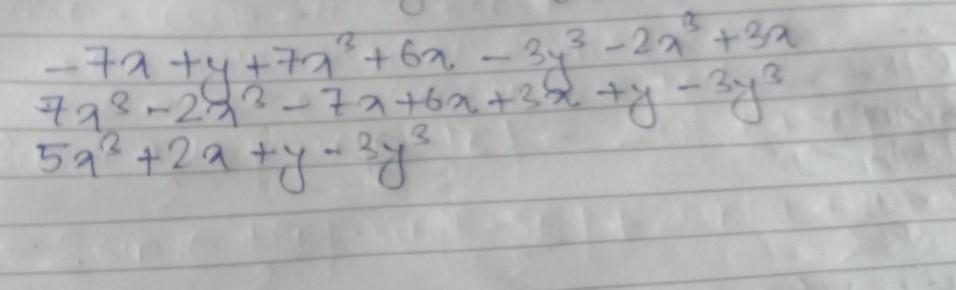 -7x + y + 7x³ + 6x - 3y³ - 2x³ + 3x
7x³ - 2x³ - 7x + 6x + 3x + y - 3y³
5x³ + 2x + y - 3y³